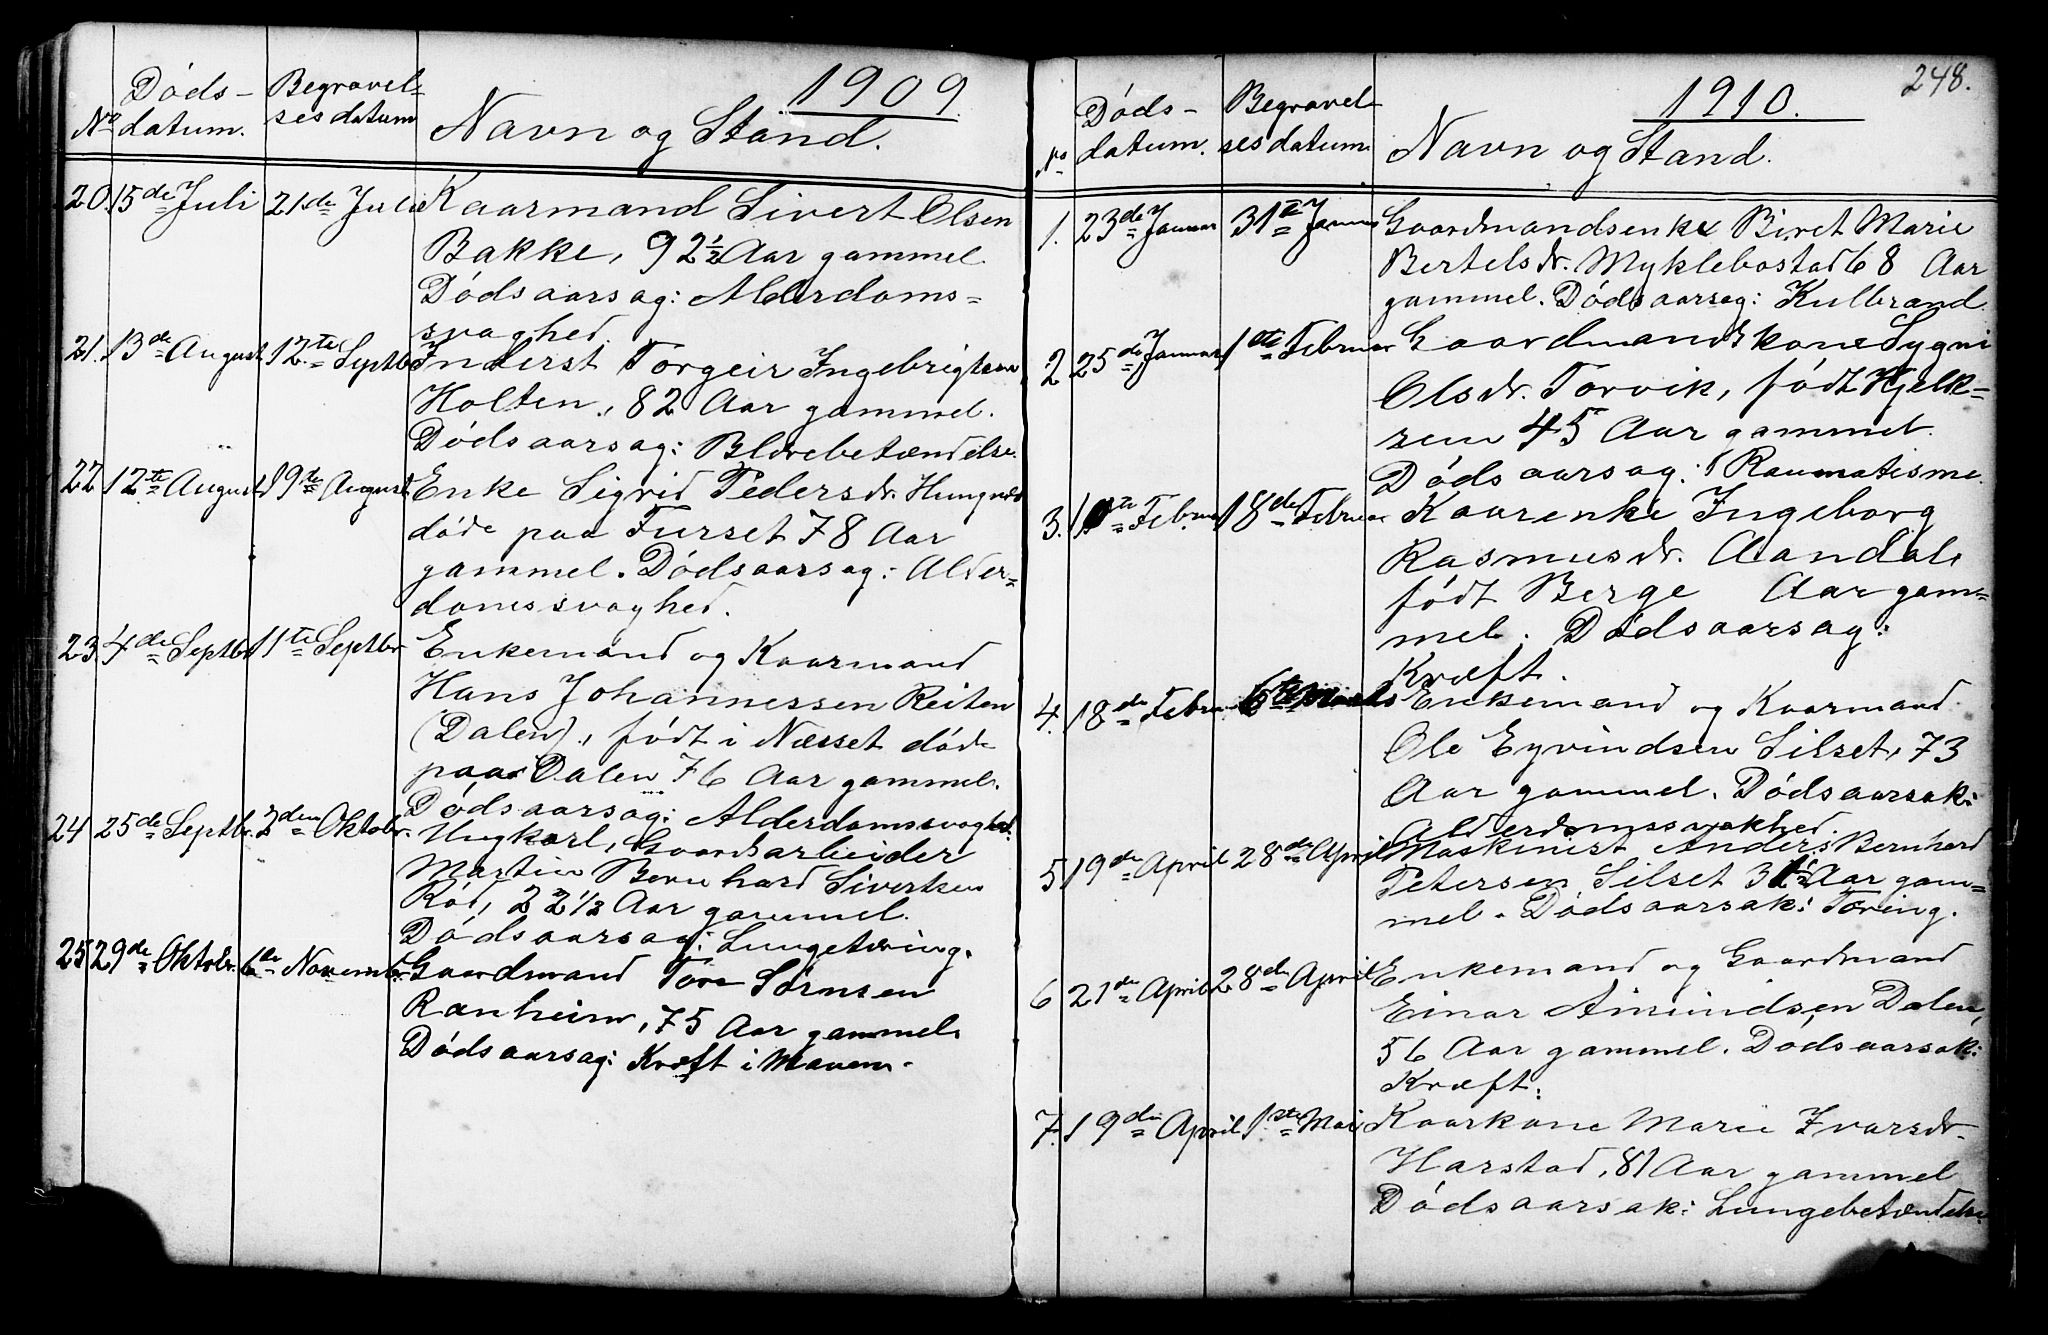 1909
Døds- Begravel-
No datum. sesdatum Navn og Stand.
20. 15de Juli 21de Juli Kaarmand Sivert Olsen
Bakke, 92½ Aar gammel
Dødsaarsag: Alderdoms-
svaghed.
21. 13de August 12te Septbr Inderst Torgeir Ingebrigtsen
Holten, 82 Aar gammel.
Dødsaarsag: Blærebetændelse.
22 12te August 19de August Enke Sigrid Pedersdr.
døde paa Furset 78 Aar
gammel. Dødsaarsag: Alder-
domssvaghed.
23. 4de Septbr 11te Septbr Enkemand og Kaarmand
Hans Johannessen Reiten
(Dalen), født i Næsset døde
paa Dalen 76 Aar gammel.
Dødsaarsag: Alderdomssvaghed.
24 25de Septbr. 2den Oktobr. Ungkarl, Gaardsarbeider
Martin Bernhard Sivertsen
Rød, 22½ Aar gammel.
Dødsaarsag: Lungetæring.
25 29de Oktobr. 6te Novembr. Gaardmand Tore Sørnsen
Ranheim, 75 Aar gammel.
Dødsaarsag: Kræft i Maven.
248.
1910.
Døds- Begravel-
No datum. sesdatum Navn og Stand.
1. 23de Januar 31te Januar Gaardmandsenke Biret Marie
Bertelsdr. Myklebostad 68 Aar
gammel. Dødsaarsag: Kulbrand
2 25de Januar 1ste Februar Gaardmandskone Sygni
Olsdr. Torvik, født Hjelk-
rem 45 Aar gammel.
Dødsaarsag: Raumatisme.
3. Februar 18de Februar Kaarenke Ingeborg
Rasmusdr. Aandals
født Berge Aar gam-
mel. Dødsaarsag:
Kræft.
4. 18de Februar 6te Marts Enkemand og Kaarmand
Ole Eyvindsen Silset, 73
Aar gammel. Dødsaarsak:
Alderdomssvakhed.
5 19de April 28de April Maskinist Anders Bernhard
Petersen Silset Aar gam-
mel. Dødsaarsak: Tæring.
6 21de April 28de April Enkemand og Gaardmand
Einar Amundsen Dalen,
56 Aar gammel. Dødsaarsak:
Kræft.
7. 19de April 1ste Mai Kaarkone Marie Ivarsdr.
Harstad, 81 Aar gammel
Dødsaarsak: Lungebetændelse